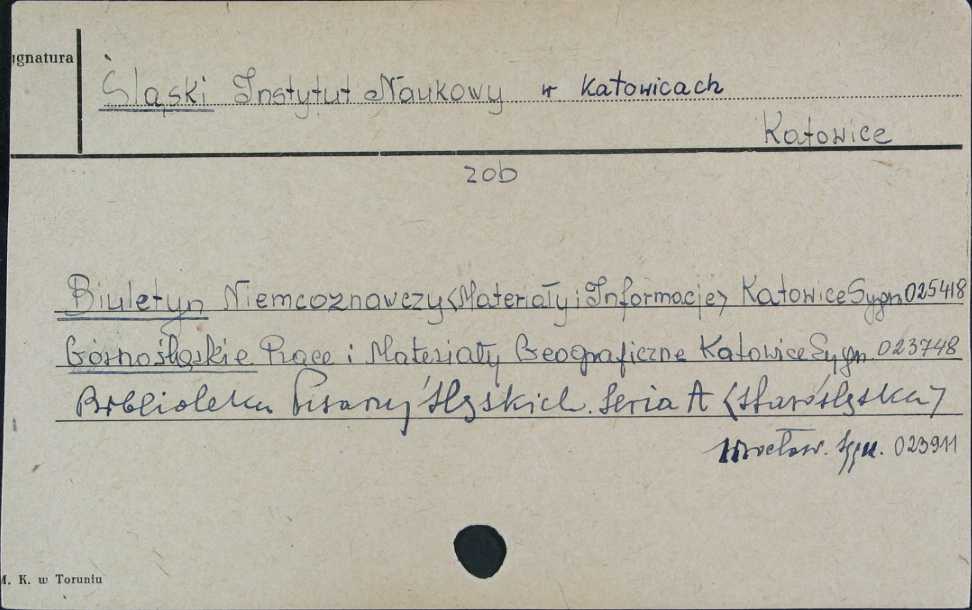 ygnatura
Śląski Instytut Naukowy w Katowicach
Katowice
zob
Biuletyn Niemcoznawczy <Materiały i Informacje> Katowice Sygn 025418
Górnośląskie Prace i Materiały Geograficzne Katowice Sygn. 023748
Biblioteka Pisarzy Śląskich. Seria A <Starośląska>
Wrocław. Sygn. 023911
M. K. w Toruniu